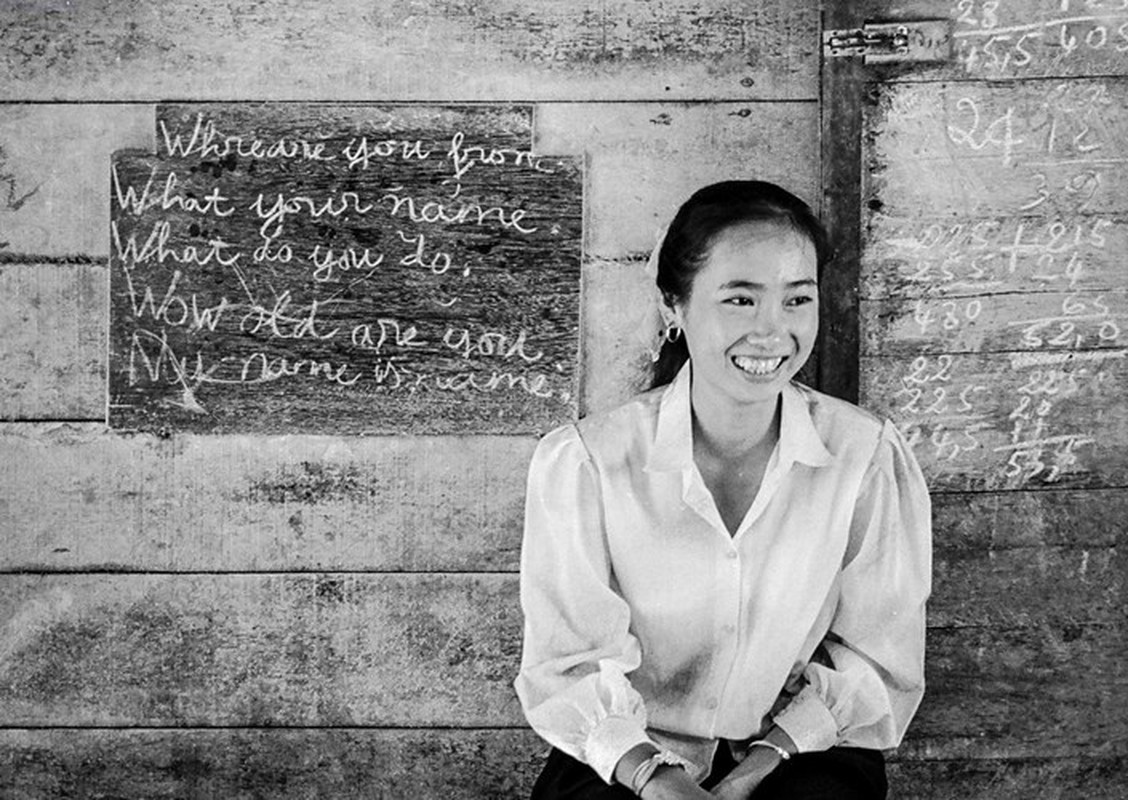 Whreare you from.
What your name.
What do you do.
Wow old are you
My name is name.
28
45,5 605
24 12
39
025 + 215
255 24
430 65
52,0
22 225
225 24
44,5
53,5